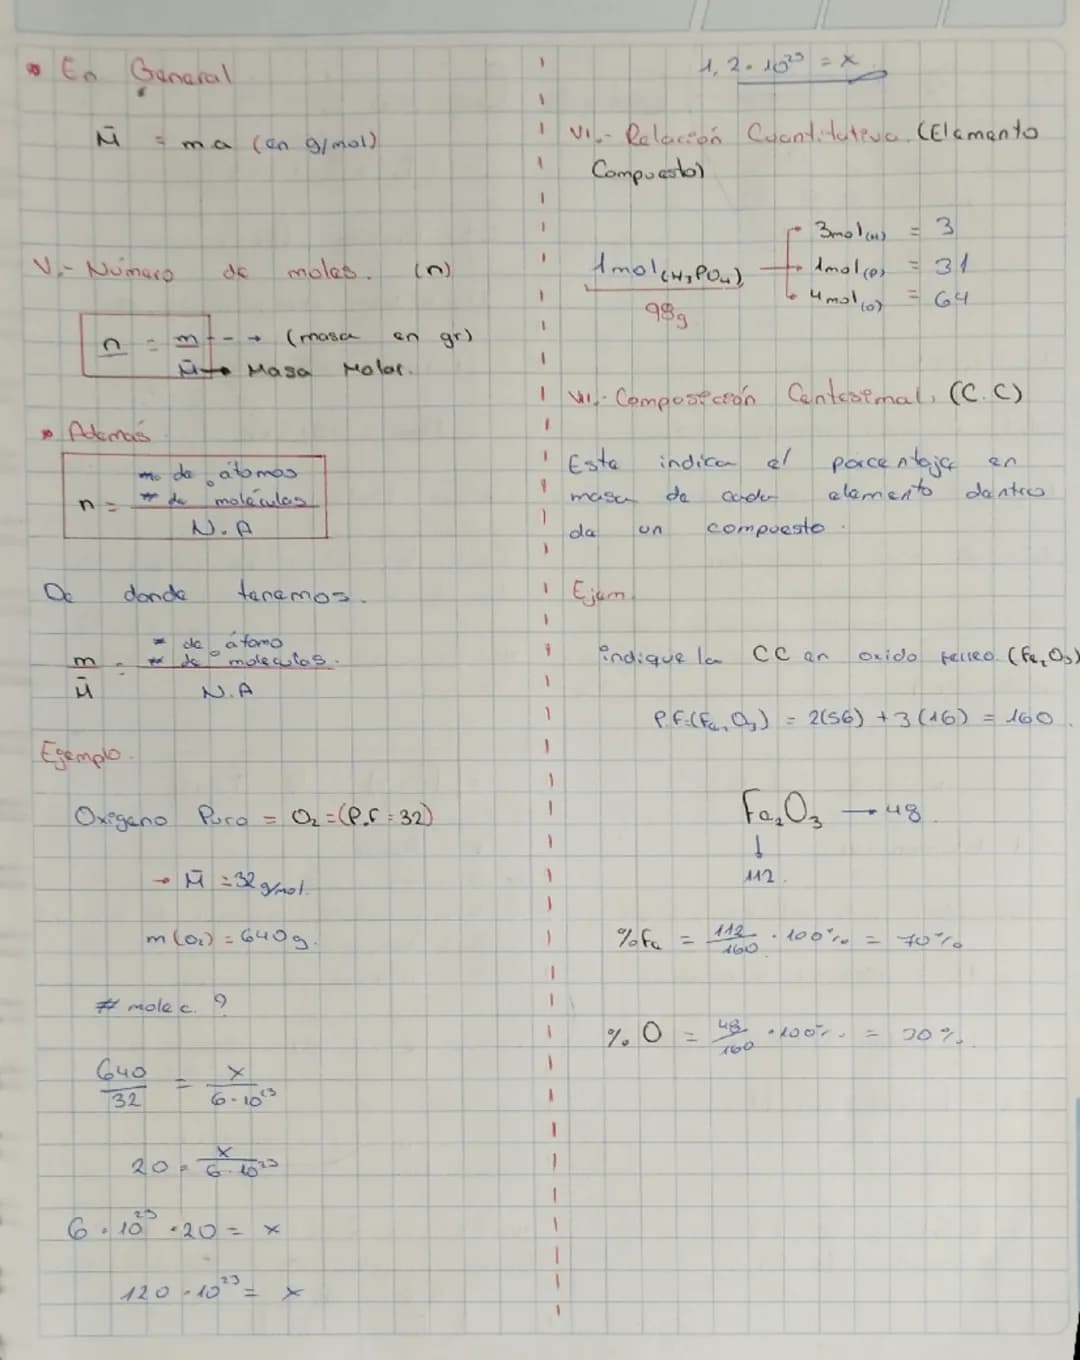 • En General
M̄ = ma (en g/mol)
V.- Número de moles. (n)
n = m → (masa en gr)
M̄ → Masa Molar.
• Además
# de átomos
n = # de moléculas
N.A
De donde tenemos.
# de átomo
m = # de moleculas.
M̄ N.A
Ejemplo.
Oxigeno Puro = O₂ = (P.F = 32)
→ M̄ = 32 g/mol.
m (O₂) = 640g.
# molec. ?
640 = x
32 6 · 10²³
20 = x
6 · 10²³
6 · 10²³ · 20 = x
120 · 10²³ = x
1,2 · 10²⁵ = x
VI.- Relación Cuantitativa. (Elemento
Compuesto)
3mol(H) = 3
1mol(H₃PO₄) → 1mol(P) = 31
98g
4mol(O) = 64
VII.- Composición Centesimal. (C.C)
Este indica el porcentaje en
masa de cada elemento dentro
de un compuesto.
Ejem.
indique la CC en oxido ferreo (Fe₂O₃)
P.F.(Fe₂O₃) = 2(56) + 3(16) = 160.
Fe₂O₃ → 48.
↓
112.
%Fe = 112/160 · 100% = 70%
% O = 48/160 · 100% = 30%.